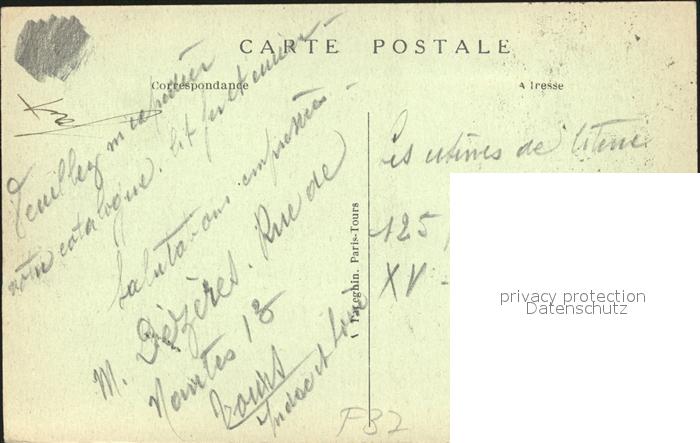 CARTE POSTALE
Correspondance
Adresse
Veuillez m'expédier
votre catalogue. lit fer et cuivre
Salutations empressées
M. Dézères. Rue de
Nantes 13
Tours
Indre et Loire
A. Papeghin. Paris-Tours
Les usines de literie
125
XV
F37
privacy protection
Datenschutz